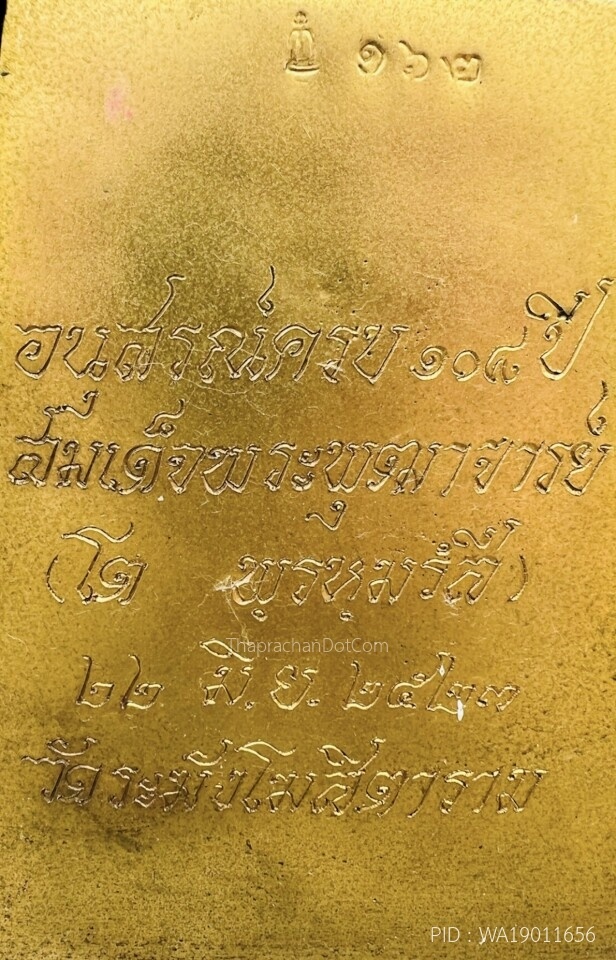 ๑๖๒
อนุสรณ์ครบ ๑๐๘ ปี
สมเด็จพระพุฒาจารย์
(โต พฺรหฺมรํสี)
๒๒ มิ.ย. ๒๕๒๓
วัดระฆังโฆสิตาราม
ThaprachanDotCom
PID : WA19011656